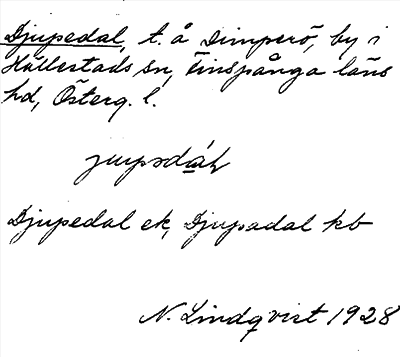 Djupedal, t. å Dimperö, by i
Hällestads sn, Finspånga läns
hd, Österg. l.
Djupedal ek, Djupadal kb
N. Lindqvist 1928